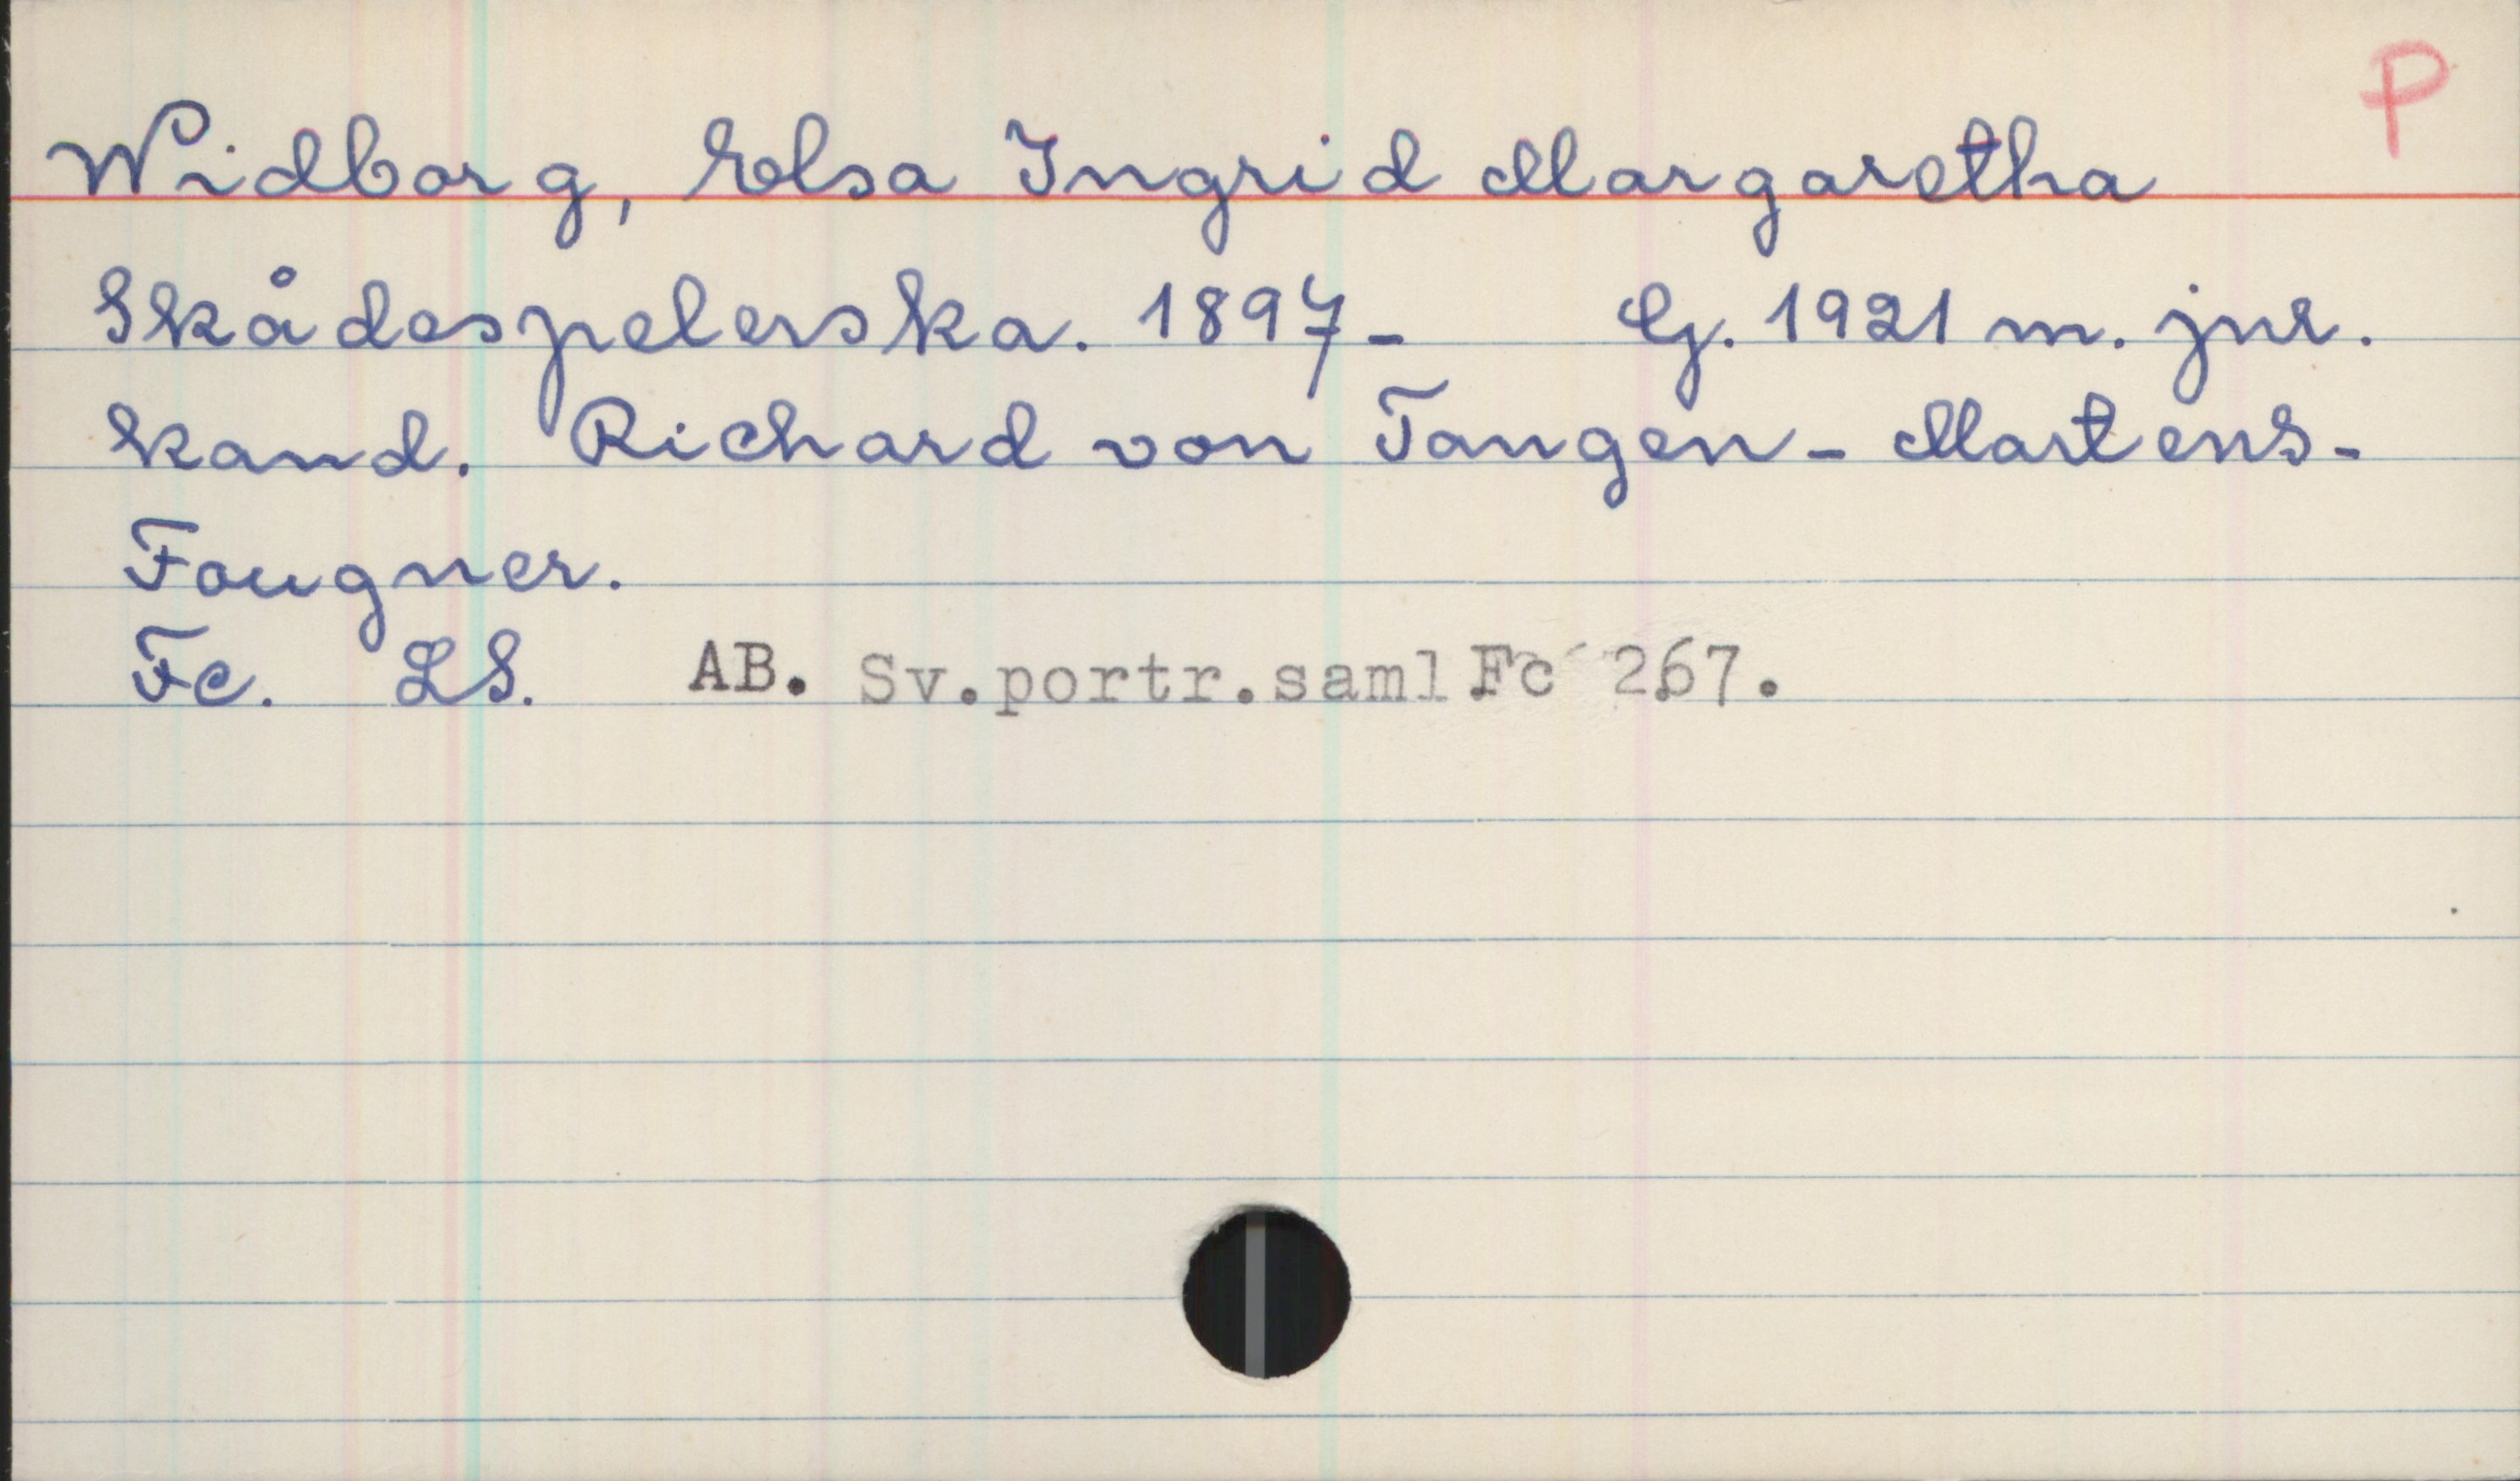 P
Widborg, Elsa Ingrid Margaretha
Skådespelerska. 1897- G. 1921 m. jur.
kand. Richard von Tangen-Martens-
Fougner.
Fc. LS. AB. Sv.portr.saml Fc 267.